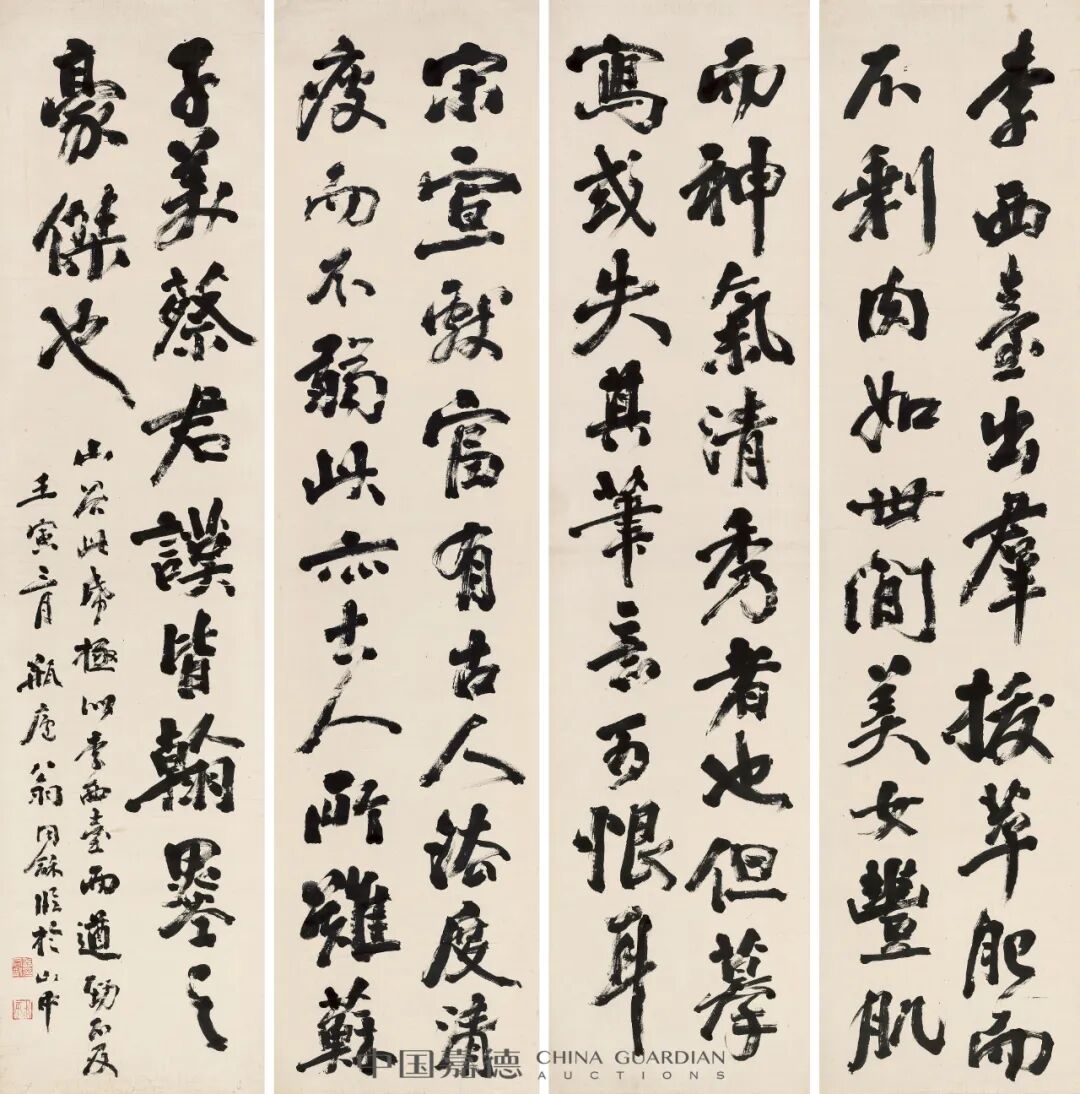 李西臺出羣拔萃肥而
不剩肉如世間美女豐肌
而神氣清秀者也但摹
寫或失其筆意可恨耳
宋宣獻富有古人法度清
瘦而不弱此亦古人所難蘇
子美蔡君謨皆翰墨之
豪傑也
山谷此帖極似李西臺而遒勁不及
壬寅三月 瓶廬翁同龢臨於山中
中国嘉德 CHINA GUARDIAN
AUCTIONS